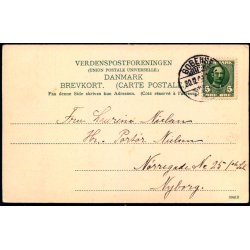 VERDENSPOSTFORENINGEN
(UNION POSTALE UNIVERSELLE)
DANMARK
BREVKORT. (CARTE POSTALE)
Paa denne Side skrives kun Adressen. (Côté réservé à l'adresse)
5 5
Frøu Laurine Nielsen
Hr. Portør Nielsen
Nørregade No 25
Nyborg.